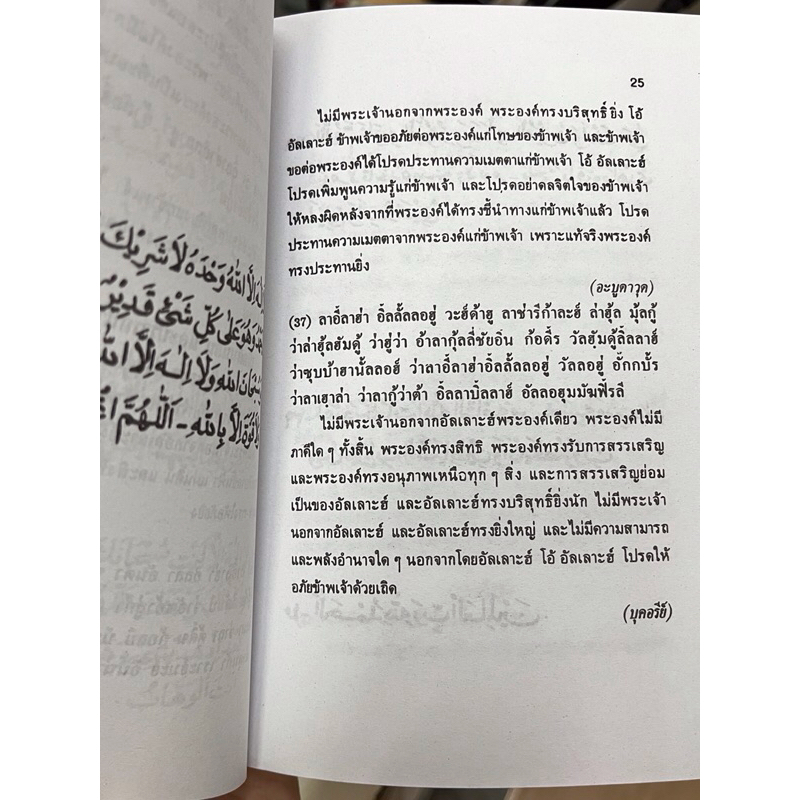 لَا شَرِيْكَ
وَهُوَ عَلَى كُلِّ شَىْءٍ قَدِيْرٌ
اللهِ وَلَا اِلٰهَ اِلَّا اللهُ
اِلَّا بِاللهِ - اَللّٰهُمَّ
25
ไม่มีพระเจ้านอกจากพระองค์ พระองค์ทรงบริสุทธิ์ยิ่ง โอ้
อัลเลาะฮ์ ข้าพเจ้าขออภัยต่อพระองค์แก่โทษของข้าพเจ้า และข้าพเจ้า
ขอต่อพระองค์ได้โปรดประทานความเมตตาแก่ข้าพเจ้า โอ้ อัลเลาะฮ์
โปรดเพิ่มพูนความรู้แก่ข้าพเจ้า และโปรดอย่าดลจิตใจของข้าพเจ้า
ให้หลงผิดหลังจากที่พระองค์ได้ทรงชี้นำทางแก่ข้าพเจ้าแล้ว โปรด
ประทานความเมตตาจากพระองค์แก่ข้าพเจ้า เพราะแท้จริงพระองค์
ทรงประทานยิ่ง
(อะบูดาวุด)
(37) ลาอี้ลาฮ่า อิ้ลลั้ลลอฮู่ วะฮ์ด้าฮู ลาช่ารีก้าละฮ์ ล่าฮุ้ล มุ้ลกู้
ว่าล่าฮุ้ลฮัมดู้ ว่าฮู่ว่า อ้าลากุ้ลลี่ชัยอิ่น ก้อดี้ร วัลฮัมดู้ลิ้ลลาฮ์
ว่าซุบบ้าฮานั้ลลอฮ์ ว่าลาอี้ลาฮ่าอิ้ลลั้ลลอฮู่ วัลลอฮู่ อั๊กกบั้ร
ว่าลาเฮาล่า ว่าลากู้ว่าต้า อิ้ลลาบิ้ลลาฮ์ อัลลอฮุมมัฆฟิ้รลี
ไม่มีพระเจ้านอกจากอัลเลาะฮ์พระองค์เดียว พระองค์ไม่มี
ภาคีใด ๆ ทั้งสิ้น พระองค์ทรงสิทธิ พระองค์ทรงรับการสรรเสริญ
และพระองค์ทรงอนุภาพเหนือทุก ๆ สิ่ง และการสรรเสริญย่อม
เป็นของอัลเลาะฮ์ และอัลเลาะฮ์ทรงบริสุทธิ์ยิ่งนัก ไม่มีพระเจ้า
นอกจากอัลเลาะฮ์ และอัลเลาะฮ์ทรงยิ่งใหญ่ และไม่มีความสามารถ
และพลังอำนาจใด ๆ นอกจากโดยอัลเลาะฮ์ โอ้ อัลเลาะฮ์ โปรดให้
อภัยข้าพเจ้าด้วยเถิด
(บุคอรีย์)